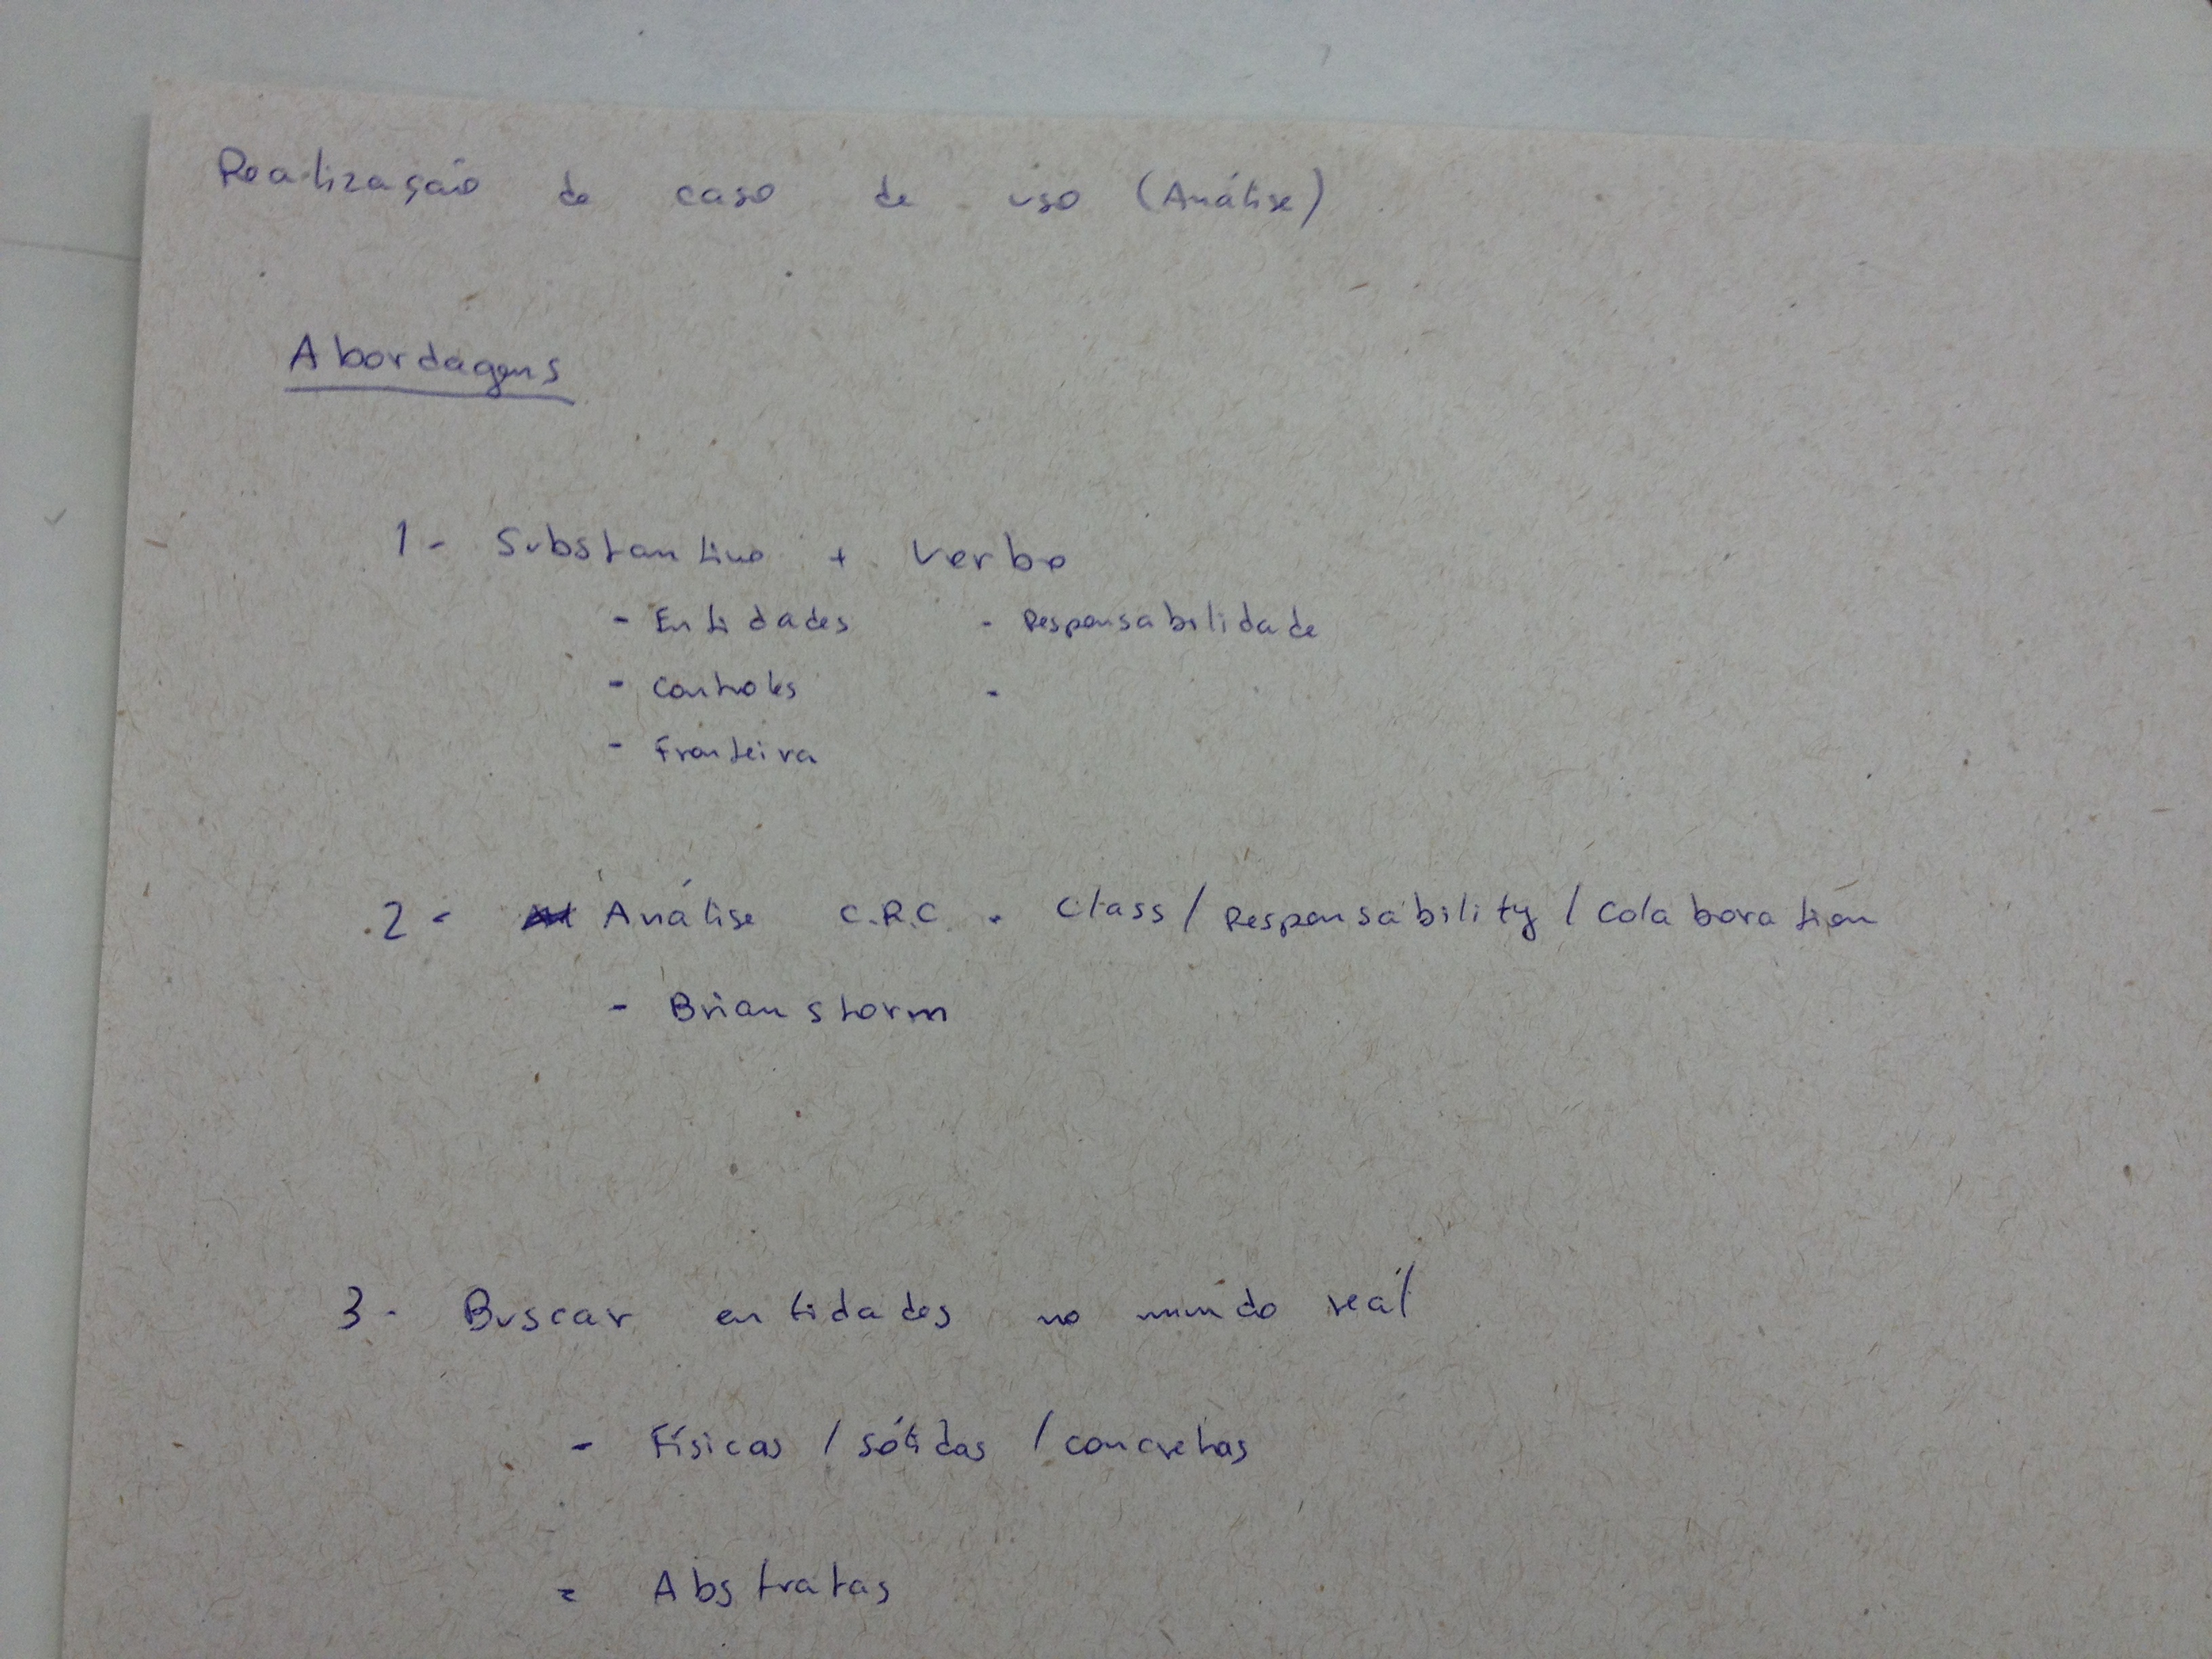 Realização de caso de uso (Análise)
Abordagens
1 - Substantivo + Verbo
- Entidades - Responsabilidade
- Controles -
- Fronteira
2 - Análise C.R.C - Class / Responsability / Colaboration
- Brianstorm
3 - Buscar entidades no mundo real
- Físicas / sólidas / concretas
- Abstratas